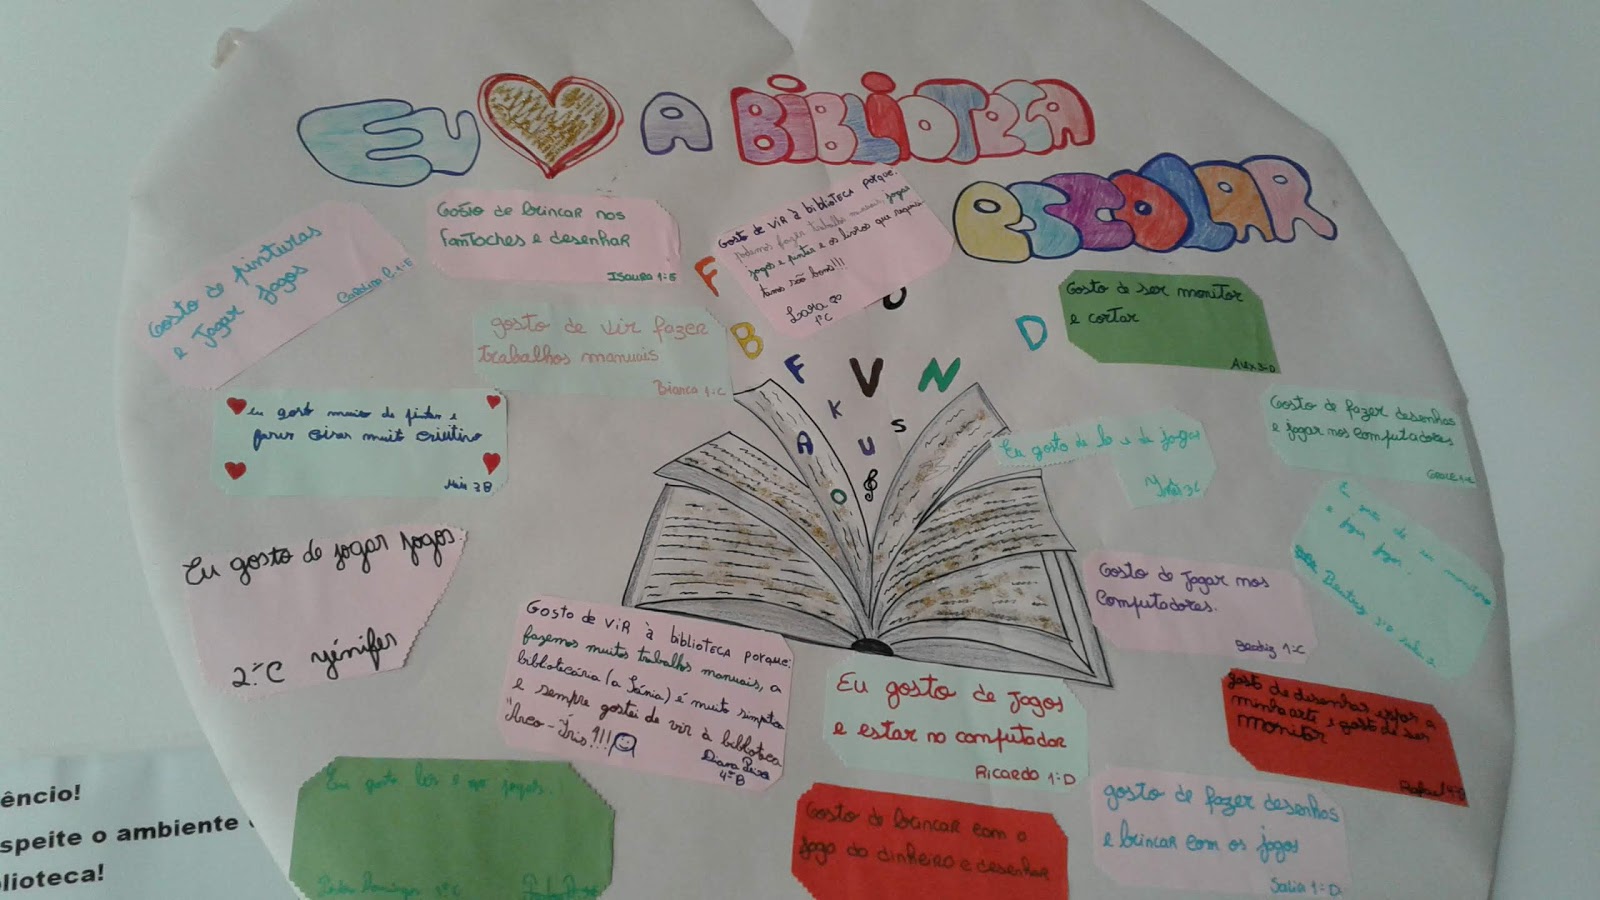 Eu A BIBLIOTECA
ESCOLAR
Gosto de pinturas
e Jogar Jogos
Carolina 1.º E
Gosto de brincar nos
fantoches e desenhar
Isaura 1.º E
Gosto de vir à biblioteca porque:
podemos fazer trabalhos manuais, jogos
jogos e pintar e os livros que requisi
tamos são bons!!!
Lara
1ºC
gosto de vir fazer
trabalhos manuais
Bianca 1.º C
Gosto de ser monitor
e cortar
Alex 3.º D
F
U
B
D
F
V
N
K
S
A
U
O
eu gosto muito de pintar e
muito criativo
3B
Eu gosto de e de jogos
3C
Gosto de fazer desenhos
e jogar nos computadores
Eu gosto de jogar jogos.
2.º C Yénifer
e jogar jogos.
Gosto de Jogar nos
Computadores.
Beatriz 1.º C
Gosto de vir à biblioteca porque:
fazemos muitos trabalhos manuais, a
bibliotecária (a Tânia) é muito simpática
e sempre gostei de vir à biblioteca
"Arco-Íris"!!!
Diana
4ºB
Eu gosto de Jogos
e estar no computador
Ricardo 1.º D
gosto de desenhar expor a
minha arte e gosto de ser
monitor
Rafael 4.º D
Eu gosto ler e jogos.
Gosto de brincar com o
jogo do dinheiro e desenhar
gosto de fazer desenhos
e brincar com os jogos
Salia 1.º D
êncio!
speite o ambiente
lioteca!